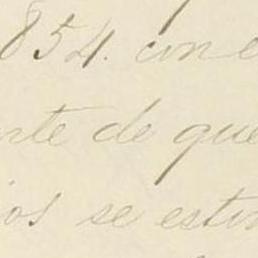 854. con e
rte de que
ios se estim